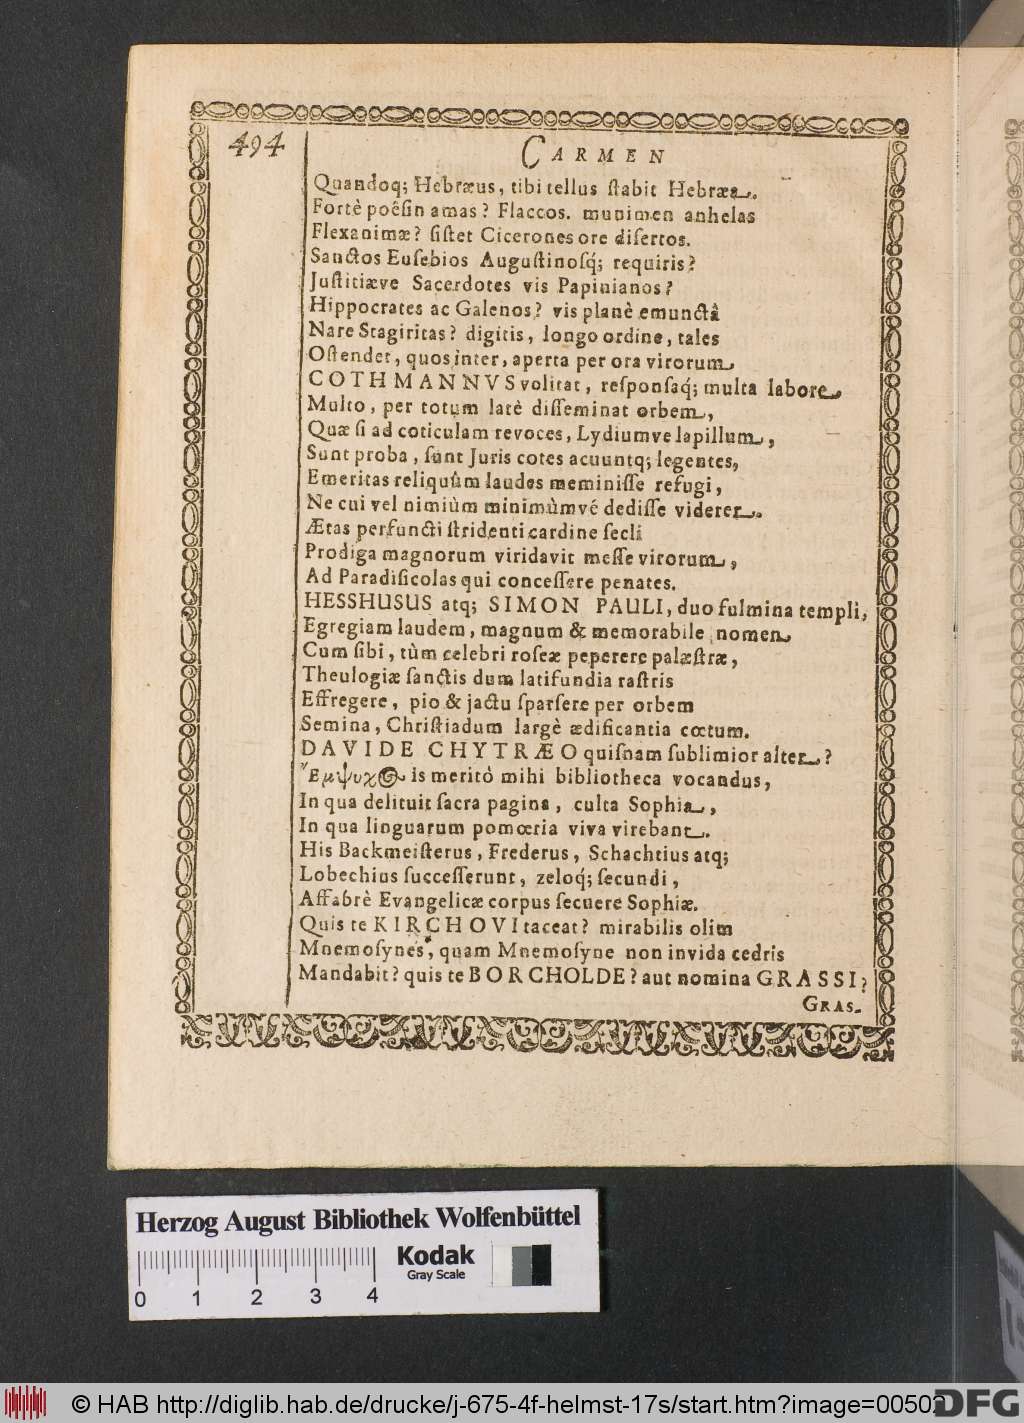 494
CARMEN
Quandoq; Hebræus, tibi tellus ſtabit Hebræa.
Fortè poêſin amas? Flaccos. munimen anhelas
Flexanimæ? ſiſtet Cicerones ore diſertos.
Sanctos Euſebios Auguſtinoſq́; requiris?
Juſtitiæve Sacerdotes vis Papinianos?
Hippocrates ac Galenos? vis planè emunctâ
Nare Stagiritas? digitis, longo ordine, tales
Oſtendet, quos inter, aperta per ora virorum
COTHMANNVS volitat, reſponſaq́; multa labore
Multo, per totum latè diſſeminat orbem,
Quæ ſi ad coticulam revoces, Lydiumve lapillum,
Sunt proba, ſunt Juris cotes acuuntq; legentes,
Emeritas reliquûm laudes meminiſſe refugi,
Ne cui vel nimiùm minimùmvé dediſſe viderer.
Ætas perfuncti ſtridenti cardine ſecli
Prodiga magnorum viridavit meſſe virorum,
Ad Paradiſicolas qui conceſſere penates.
HESSHUSUS atq; SIMON PAULI, duo fulmina templi,
Egregiam laudem, magnum & memorabile nomen
Cum ſibi, tùm celebri roſeæ peperere palæſtræ,
Theulogiæ ſanctis dum latifundia raſtris
Effregere, pio & jactu ſparſere per orbem
Semina, Chriſtiadum largè ædificantia cœtum.
DAVIDE CHYTRÆO quiſnam ſublimior alter?
Ἔμψυχος is meritò mihi bibliotheca vocandus,
In qua delituit ſacra pagina, culta Sophia,
In qua linguarum pomœria viva virebant.
His Backmeiſterus, Frederus, Schachtius atq;
Lobechius ſucceſſerunt, zeloq́; ſecundi,
Affabrè Evangelicæ corpus ſecuere Sophiæ.
Quis te KIRCHOVI taceat? mirabilis olim
Mnemoſynes, quam Mnemoſyne non invida cedris
Mandabit? quis te BORCHOLDE? aut nomina GRASSI?
GRAS-
Herzog August Bibliothek Wolfenbüttel
Kodak
Gray Scale
0 1 2 3 4
© HAB http://diglib.hab.de/drucke/j-675-4f-helmst-17s/start.htm?image=00502
DFG